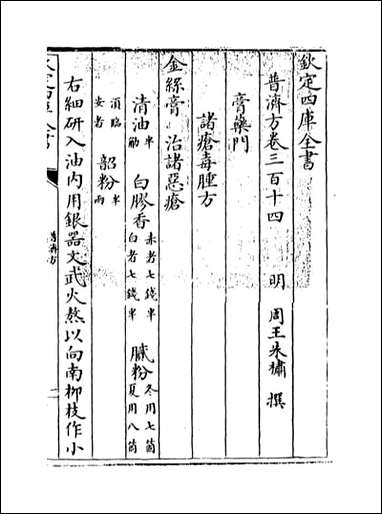 欽定四庫全書
普濟方卷三百十四 明 周王朱橚 撰
膏藥門
諸瘡毒腫方
金絲膏 治諸惡瘡
清油半觔 白膠香赤者七錢半白者七錢半 膩粉冬用七箇夏用八箇
須臨安者 韶粉半兩
右細研入油內用銀器文武火熬以向南柳枝作小
普濟方